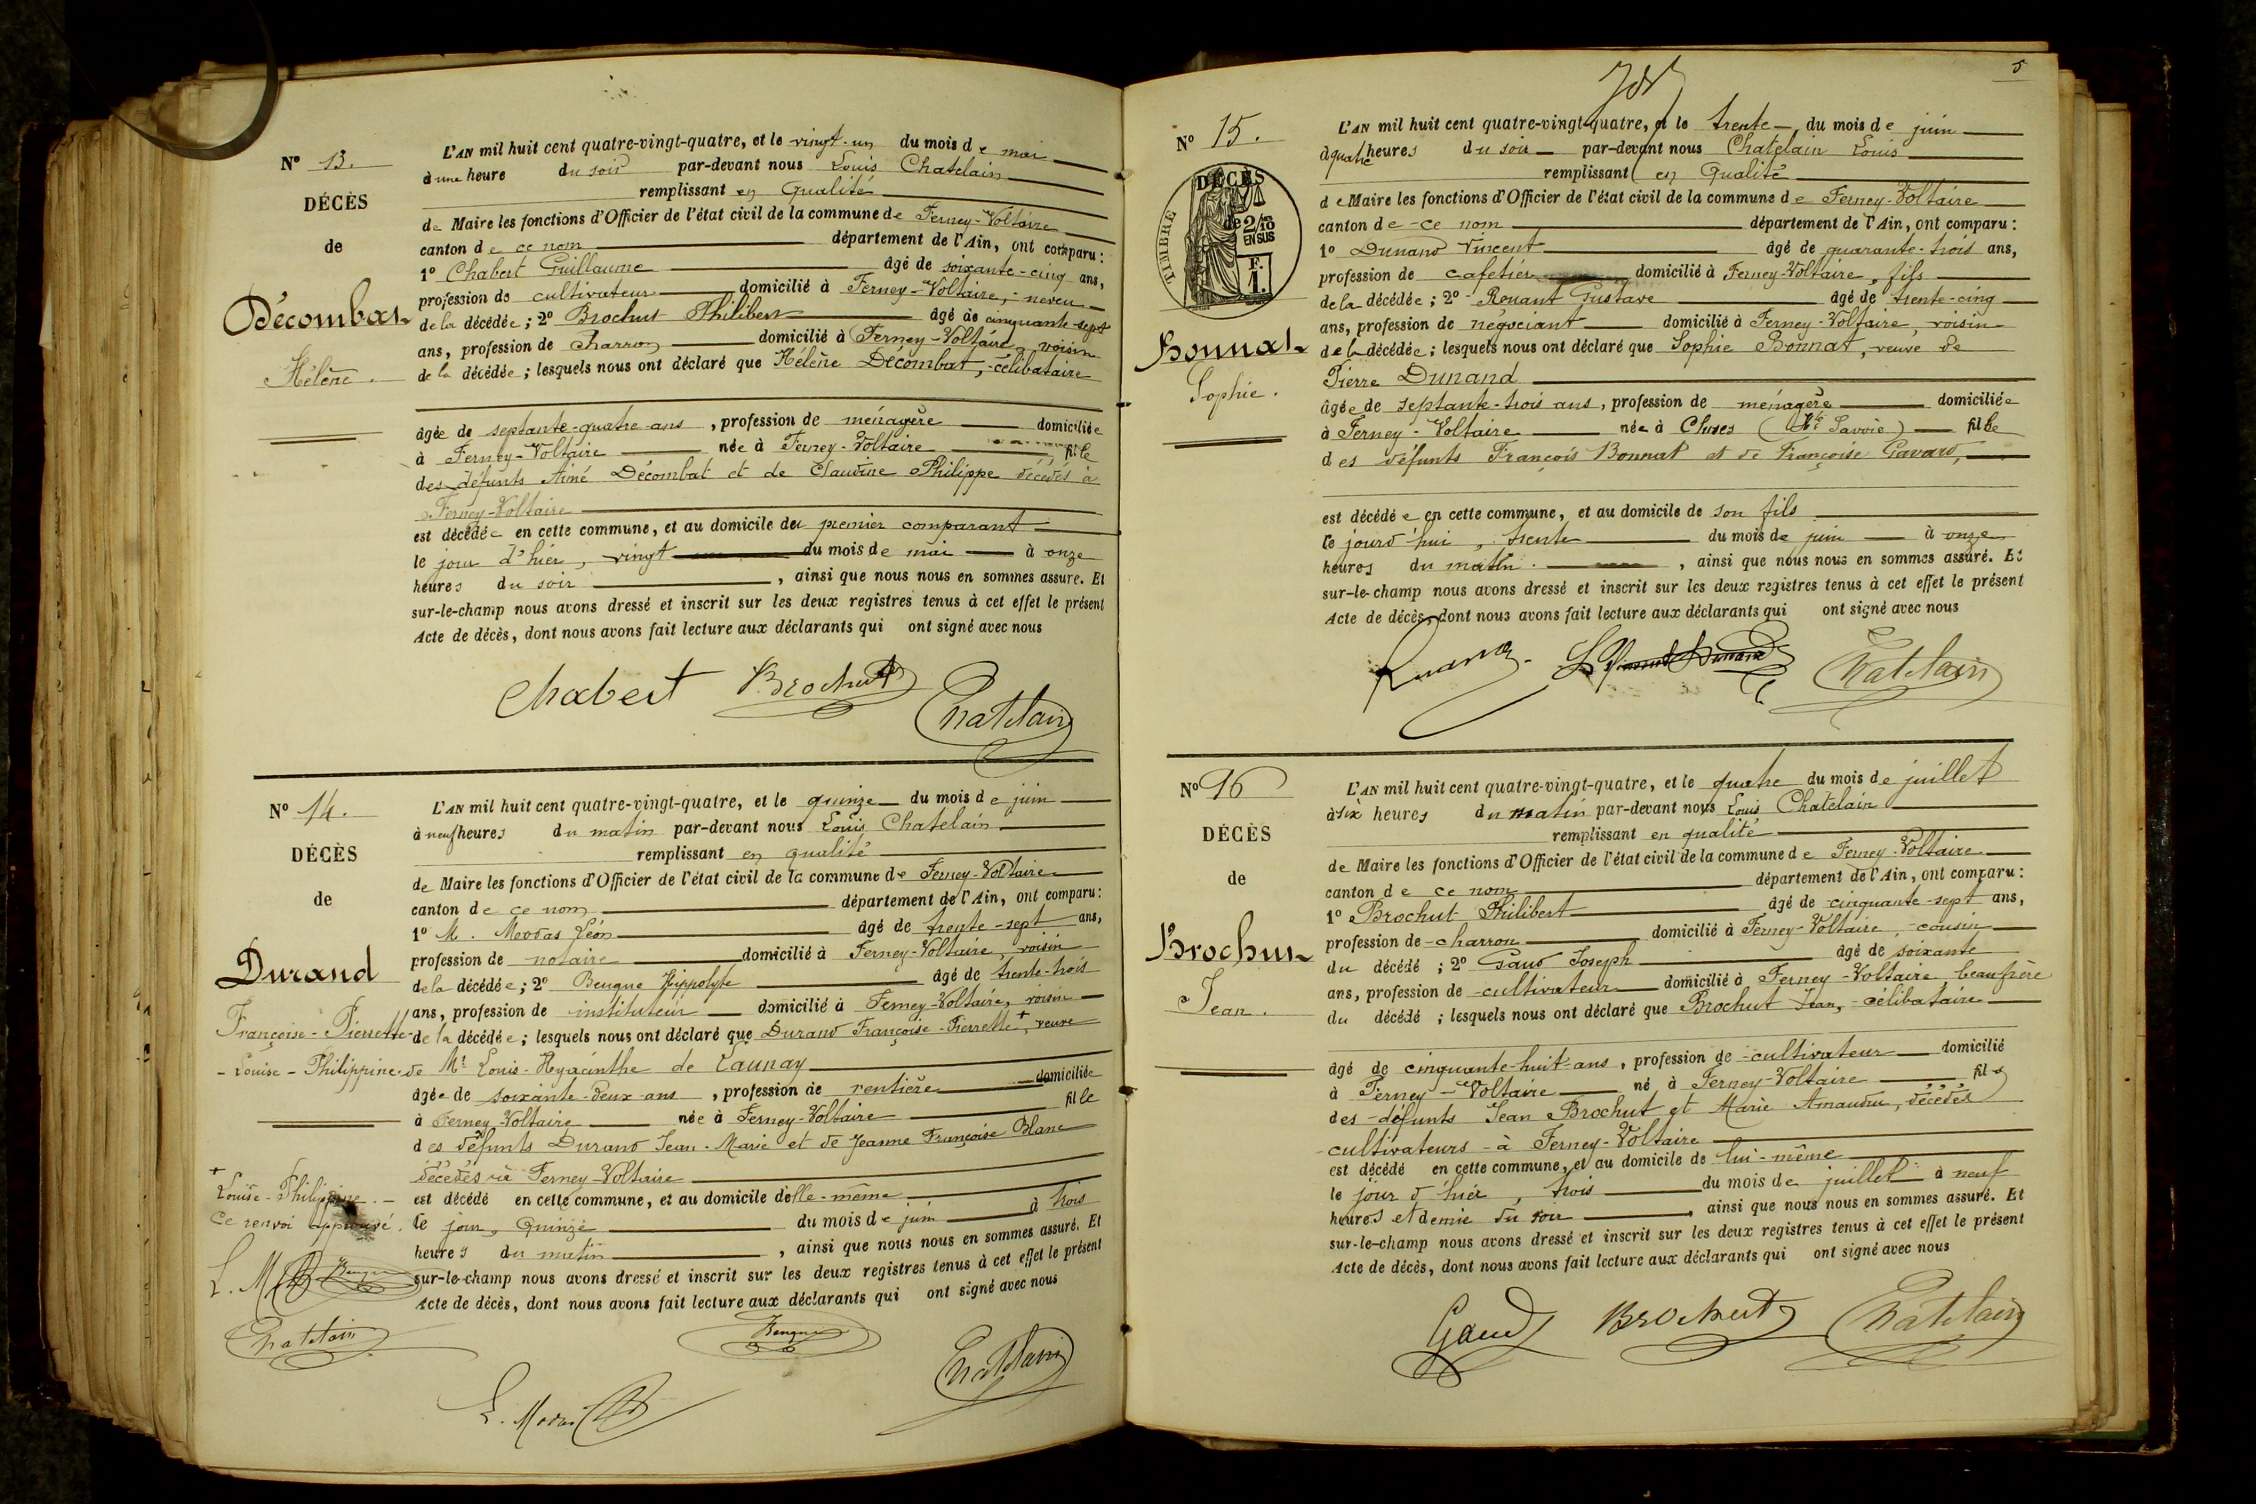 N° 13.
DÉCÈS
de
Décombat
Hélène.
L'AN mil huit cent quatre-vingt-quatre, et le vingt-un du mois de mai
à une heure du soir par-devant nous Louis Chatelain
remplissant en Qualité
de Maire les fonctions d'Officier de l'état civil de la commune de Ferney-Voltaire
canton de ce nom département de l'Ain, ont comparu :
1° Chabert Guillaume âgé de soixante-cinq ans,
profession de cultivateur domicilié à Ferney-Voltaire, neveu
de la décédée ; 2° Brochut Philibert âgé de cinquante-sept
ans, profession de charron domicilié à Ferney-Voltaire, voisin
de la décédée ; lesquels nous ont déclaré que Hélène Décombat, célibataire
âgée de septante-quatre ans, profession de ménagère domiciliée
à Ferney-Voltaire née à Ferney-Voltaire fille
des défunts Aimé Décombat et de Claudine Philippe décédés à
Ferney-Voltaire
est décédée en cette commune, et au domicile du premier comparant
le jour d'hier, vingt du mois de mai à onze
heures du soir, ainsi que nous nous en sommes assuré. Et
sur-le-champ nous avons dressé et inscrit sur les deux registres tenus à cet effet le présent
Acte de décès, dont nous avons fait lecture aux déclarants qui ont signé avec nous
Chabert Brochut Chatelain
N° 14.
DÉCÈS
de
Durand
Françoise-Pierrette
-Louise-Philippine.
L'AN mil huit cent quatre-vingt-quatre, et le quinze du mois de juin
à neuf heures du matin par-devant nous Louis Chatelain
remplissant en qualité
de Maire les fonctions d'Officier de l'état civil de la commune de Ferney-Voltaire
canton de ce nom département de l'Ain, ont comparu :
1° M. Léon âgé de trente-sept ans,
profession de notaire domicilié à Ferney-Voltaire, voisin
de la décédée ; 2° Beugne Hippolyte âgé de trente-trois
ans, profession de instituteur domicilié à Ferney-Voltaire, voisin
de la décédée ; lesquels nous ont déclaré que Durand Françoise-Pierrette +, veuve
de Mr Louis-Hyacinthe de Launay
âgée de soixante-deux ans, profession de rentière domiciliée
à Ferney-Voltaire née à Ferney-Voltaire fille
des défunts Durand Jean-Marie et de Jeanne Françoise Blanc
décédés à Ferney-Voltaire
est décédé en cette commune, et au domicile d'elle-même
le jour, Quinze du mois de juin à trois
heures du matin, ainsi que nous nous en sommes assuré. Et
sur-le-champ nous avons dressé et inscrit sur les deux registres tenus à cet effet le présent
Acte de décès, dont nous avons fait lecture aux déclarants qui ont signé avec nous
+ Louise-Philippine.
Ce renvoi approuvé.
L. M Beugne
Chatelain
Beugne
L. Chatelain
5
N° 15.
TIMBRE
DÉCÈS
de 2/10
EN SUS
F.
1.
Bonnat
Sophie.
L'AN mil huit cent quatre-vingt-quatre, et le trente du mois de juin
à quatre heures du soir par-devant nous Chatelain Louis
remplissant en Qualité
de Maire les fonctions d'Officier de l'état civil de la commune de Ferney-Voltaire
canton de ce nom département de l'Ain, ont comparu :
1° Dunand Vincent âgé de quarante-trois ans,
profession de cafetier domicilié à Ferney-Voltaire, fils
de la décédée ; 2° Gustave âgé de trente-cinq
ans, profession de négociant domicilié à Ferney-Voltaire, voisin
de la décédée ; lesquels nous ont déclaré que Sophie Bonnat, veuve de
Pierre Dunand
âgée de septante-trois ans, profession de ménagère domiciliée
à Ferney-Voltaire née à Cluses (Hte Savoie) fille
des défunts François Bonnat et de Françoise Gavard,
est décédée en cette commune, et au domicile de son fils
le jourd'hui, trente du mois de juin à onze
heures du matin, ainsi que nous nous en sommes assuré. Et
sur-le-champ nous avons dressé et inscrit sur les deux registres tenus à cet effet le présent
Acte de décès, dont nous avons fait lecture aux déclarants qui ont signé avec nous
Dunand Chatelain
N° 16
DÉCÈS
de
Brochut
Jean.
L'AN mil huit cent quatre-vingt-quatre, et le quatre du mois de juillet
à six heures du matin par-devant nous Louis Chatelain
remplissant en qualité
de Maire les fonctions d'Officier de l'état civil de la commune de Ferney-Voltaire
canton de ce nom département de l'Ain, ont comparu :
1° Brochut Philibert âgé de cinquante-sept ans,
profession de charron domicilié à Ferney-Voltaire, cousin
du décédé ; 2° Gaud Joseph âgé de soixante
ans, profession de cultivateur domicilié à Ferney-Voltaire, beaufrère
du décédé ; lesquels nous ont déclaré que Brochut Jean, célibataire
âgé de cinquante-huit ans, profession de cultivateur domicilié
à Ferney-Voltaire né à Ferney-Voltaire fils
des défunts Jean Brochut et Marie Amaudru, décédés
cultivateurs à Ferney-Voltaire
est décédé en cette commune, et au domicile de lui-même
le jour d'hier, trois du mois de juillet à neuf
heures et demie du soir, ainsi que nous nous en sommes assuré. Et
sur-le-champ nous avons dressé et inscrit sur les deux registres tenus à cet effet le présent
Acte de décès, dont nous avons fait lecture aux déclarants qui ont signé avec nous
Gaud Brochut Chatelain